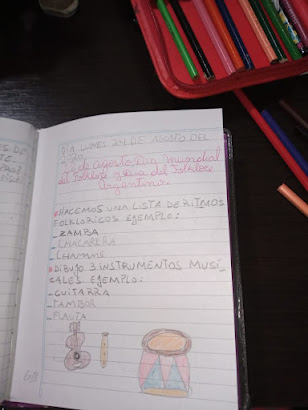 DIA LUNES 24 DE AGOSTO DEL
de agosto Dia mundial
del Folklore y Dia del Folklore
Argentino.
HACEMOS UNA LISTA DE RITMOS
FOLKLORICOS EJEMPLO:
ZAMBA
- CHACARERA
- CHAMAME
DIBUJO 3 INSTRUMENTOS MUSI-
CALES EJEMPLO:
- GUITARRA
- TAMBOR
- FLAUTA